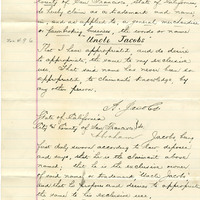 County of San Francisco, State of California
do hereby claim as a trademark and name,
in and as applied to a general merchandise
or furnishing business, the words or name
"Uncle Jacobs"
That I have appropriated and do desire
to appropriate the same to my exclusive
use. That said name has never been so
appropriated to claimants knowledge by
any other person.
A. Jacobs
State of California
City & County of San Francisco
Abraham Jacobs being
first duly sworn according to law deposes
and says, that he is the claimant above
named, that he is the exclusive owner
of said name, or trademark, "Uncle Jacobs",
and that he proposes and desires to appropriate
the same to his exclusive use.